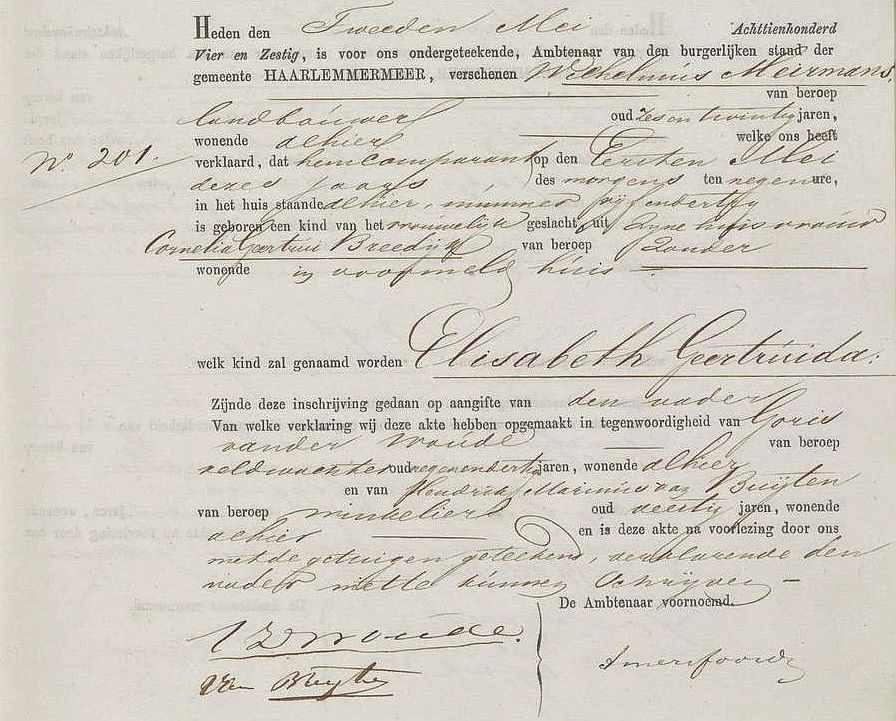 Heden den Tweeden Mei Achttienhonderd
Vier en Zestig, is voor ons ondergeteekende, Ambtenaar van den burgerlijken stand der
gemeente HAARLEMMERMEER, verschenen Wilhelmus Meirmans,
van beroep
landbouwer oud zes en twintig jaren,
wonende alhier welke ons heeft
No. 201.
verklaard, dat hem comparant op den Eersten Mei
dezes jaars, des morgens ten negen ure,
in het huis staande alhier, nummer vijfendertig
is geboren een kind van het vrouwelijk geslacht, uit zyne huisvrouw
Cornelia Geertrui Breedijk van beroep zonder
wonende in voormeld huis
welk kind zal genaamd worden Elisabeth Geertruida.
Zijnde deze inschrijving gedaan op aangifte van den vader
Van welke verklaring wij deze akte hebben opgemaakt in tegenwoordigheid van Goris
vander Woude van beroep
veldwachter oud negenendertig jaren, wonende alhier
en van Hendrik Marinus van Buijten
van beroep winkelier oud veertig jaren, wonende
alhier en is deze akte na voorlezing door ons
met de getuigen geteekend, verklarende den
vader niet te kunnen schrijven
De Ambtenaar voornoemd.
vd Woude.
Van Buijten
Amersfoordt